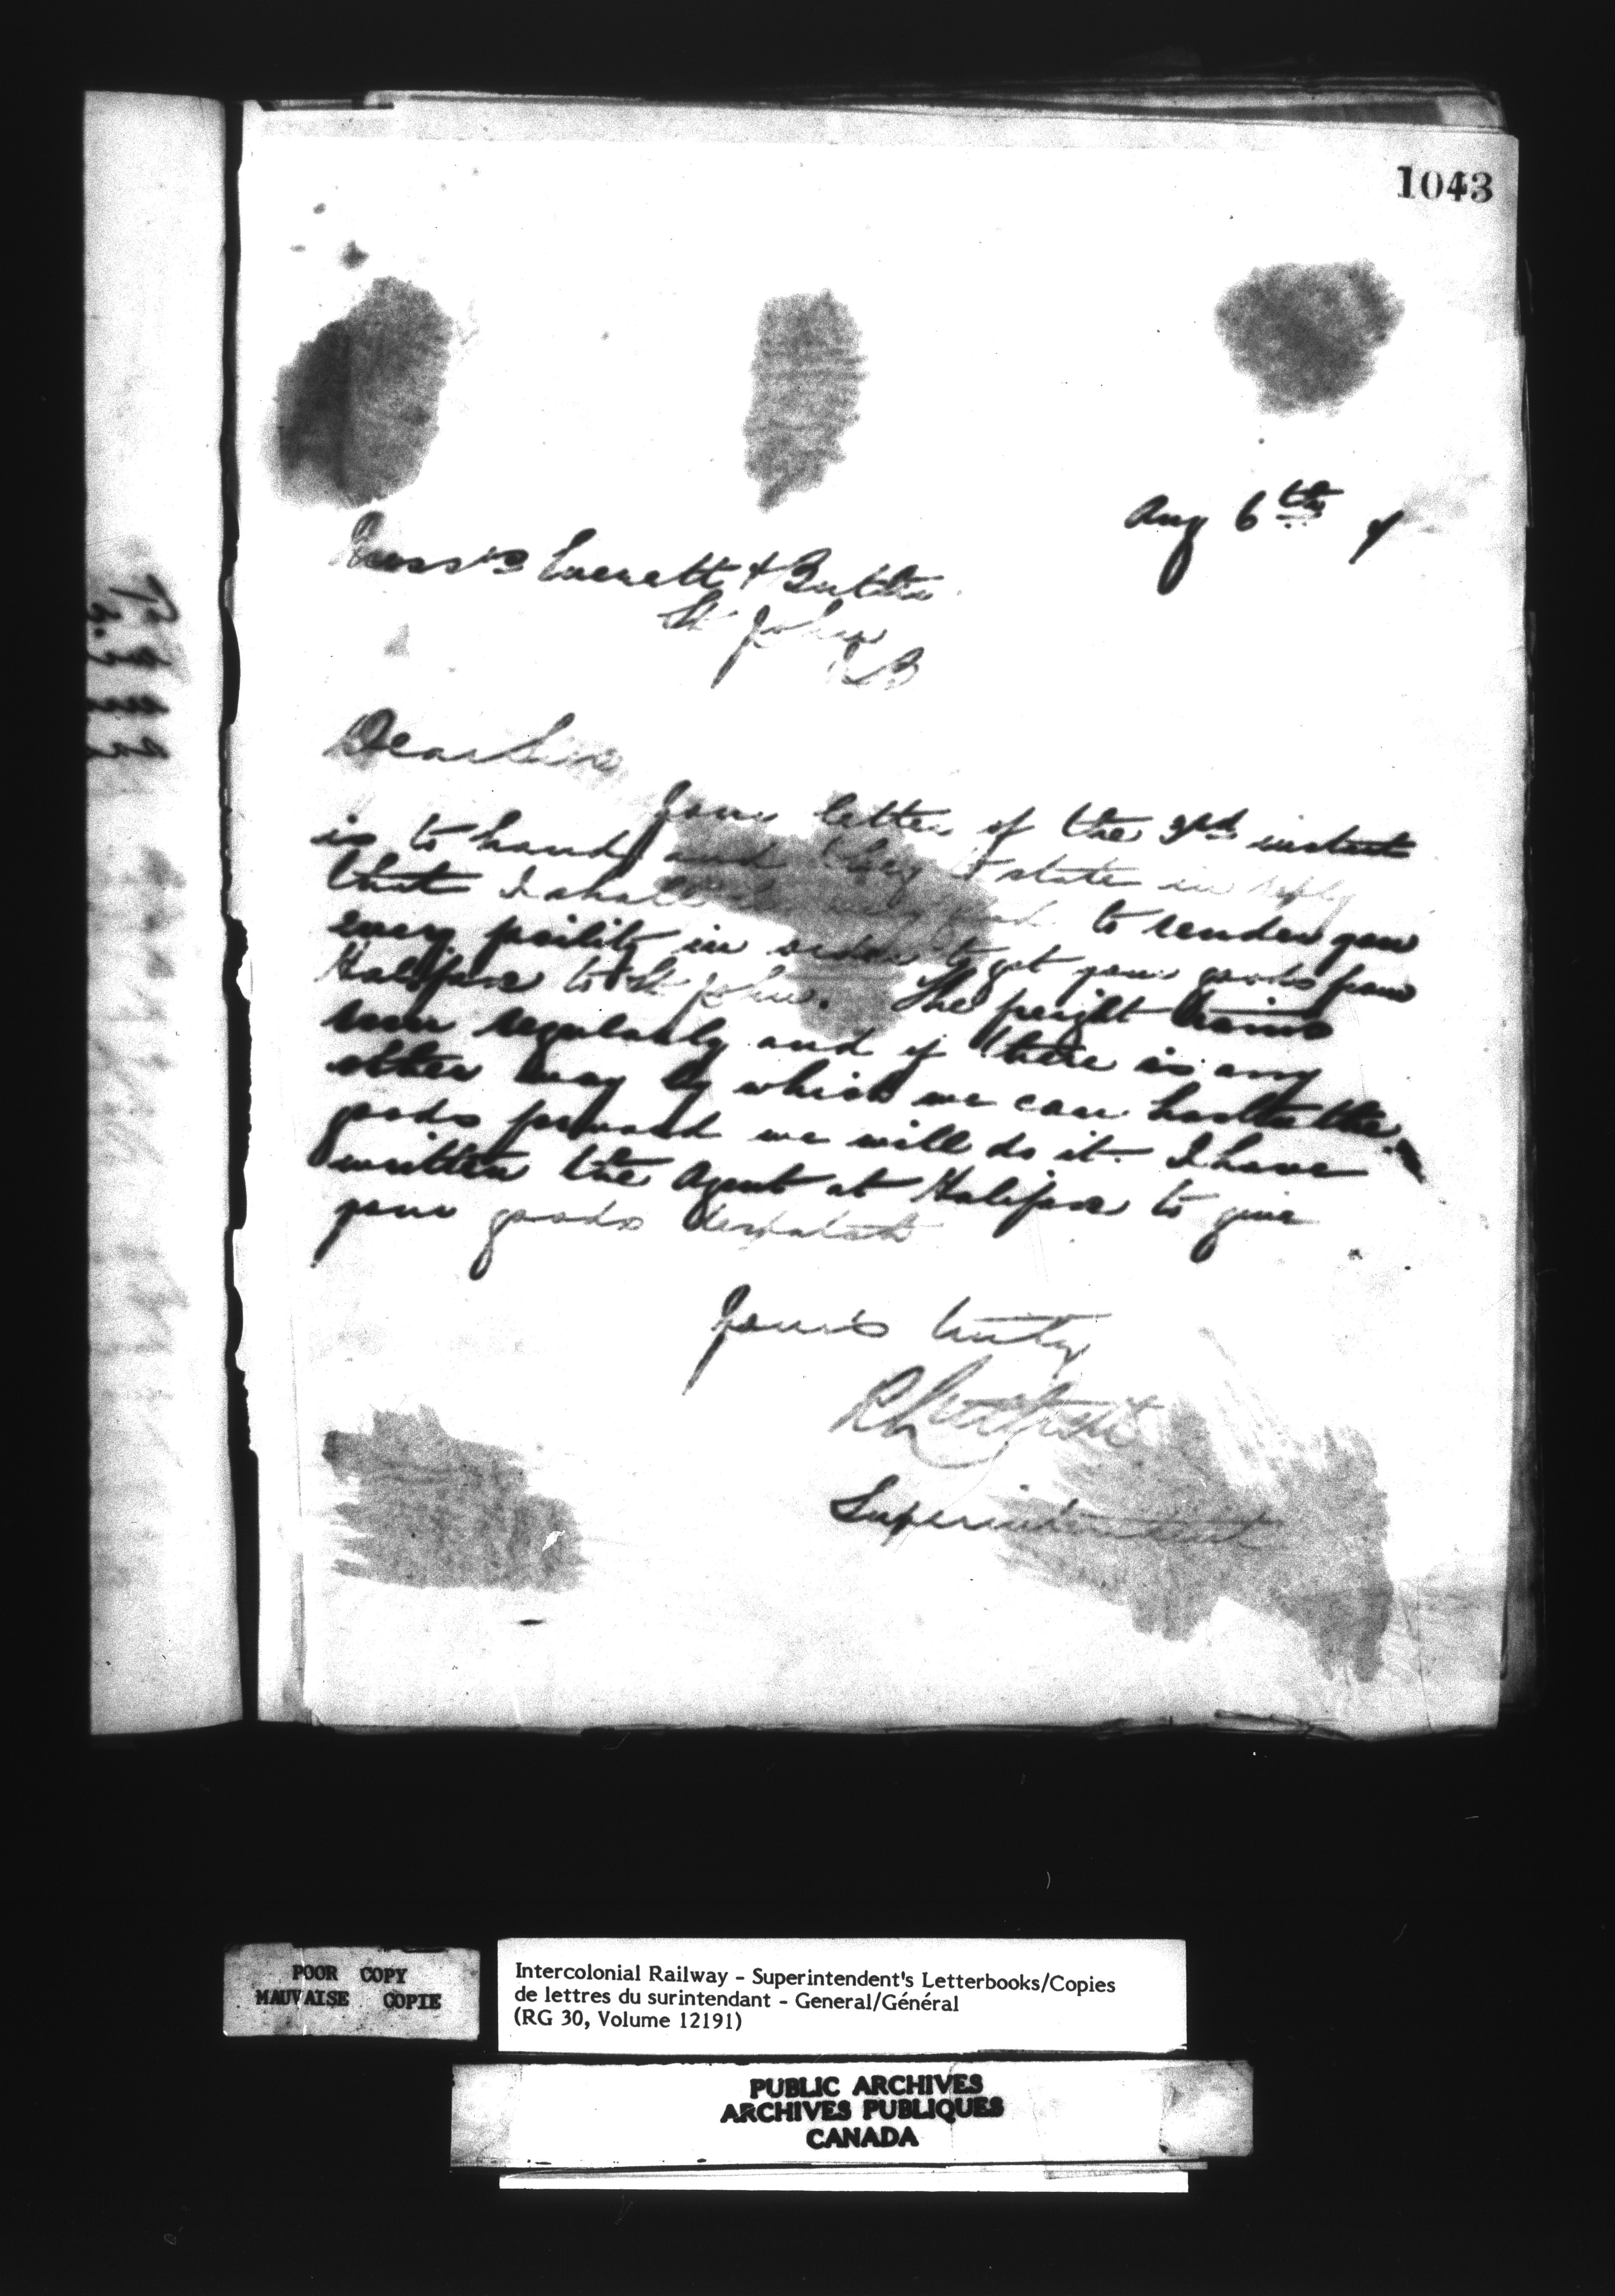 1043
Aug 6th
Messrs Everett & Butler
St John
NB
Dear Sirs
Your letter of the 3rd instant
is to hand and I beg to state in reply
that I shall be very glad to render you
every facility in order to get your goods from
Halifax to St John. The freight trains
run regularly and if there is any
other way by which we can hasten the
goods forward we will do it. I have
written the Agent at Halifax to give
your goods despatch
Yours truly
Superintendent
POOR COPY
MAUVAISE COPIE
Intercolonial Railway - Superintendent's Letterbooks/Copies
de lettres du surintendant - General/Général
(RG 30, Volume 12191)
PUBLIC ARCHIVES
ARCHIVES PUBLIQUES
CANADA